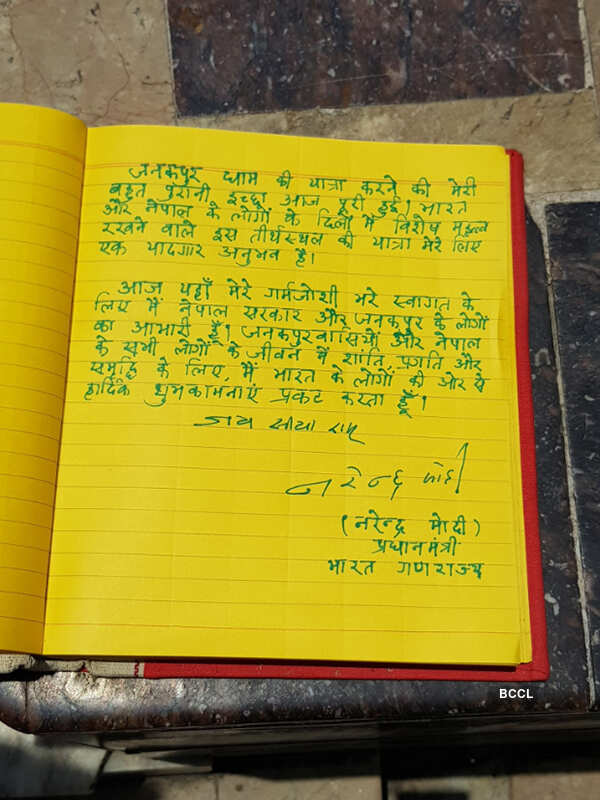 जनकपुर धाम की यात्रा करने की मेरी
बहुत पुरानी इच्छा, आज पूरी हुई। भारत
और नेपाल के लोगों के दिलों में विशेष महत्व
रखने वाले इस तीर्थस्थल की यात्रा मेरे लिए
एक यादगार अनुभव है।
आज यहाँ मेरे गर्मजोशी भरे स्वागत के
लिए मैं नेपाल सरकार और जनकपुर के लोगों
का आभारी हूँ। जनकपुरवासियों और नेपाल
के सभी लोगों के जीवन में शांति, प्रगति और
समृद्धि के लिए, मैं भारत के लोगों की ओर से
हार्दिक शुभकामनाएं प्रकट करता हूँ।
जय सीया राम
नरेन्द्र मोदी
(नरेन्द्र मोदी)
प्रधानमंत्री
भारत गणराज्य
BCCL